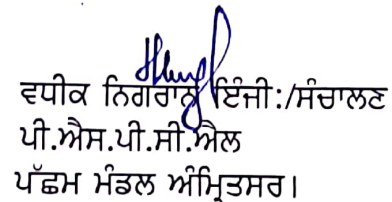 ਵਧੀਕ ਨਿਗਰਾਨ ਇੰਜੀ:/ਸੰਚਾਲਣ
ਪੀ.ਐਸ.ਪੀ.ਸੀ.ਐਲ
ਪੱਛਮ ਮੰਡਲ ਅੰਮ੍ਰਿਤਸਰ।